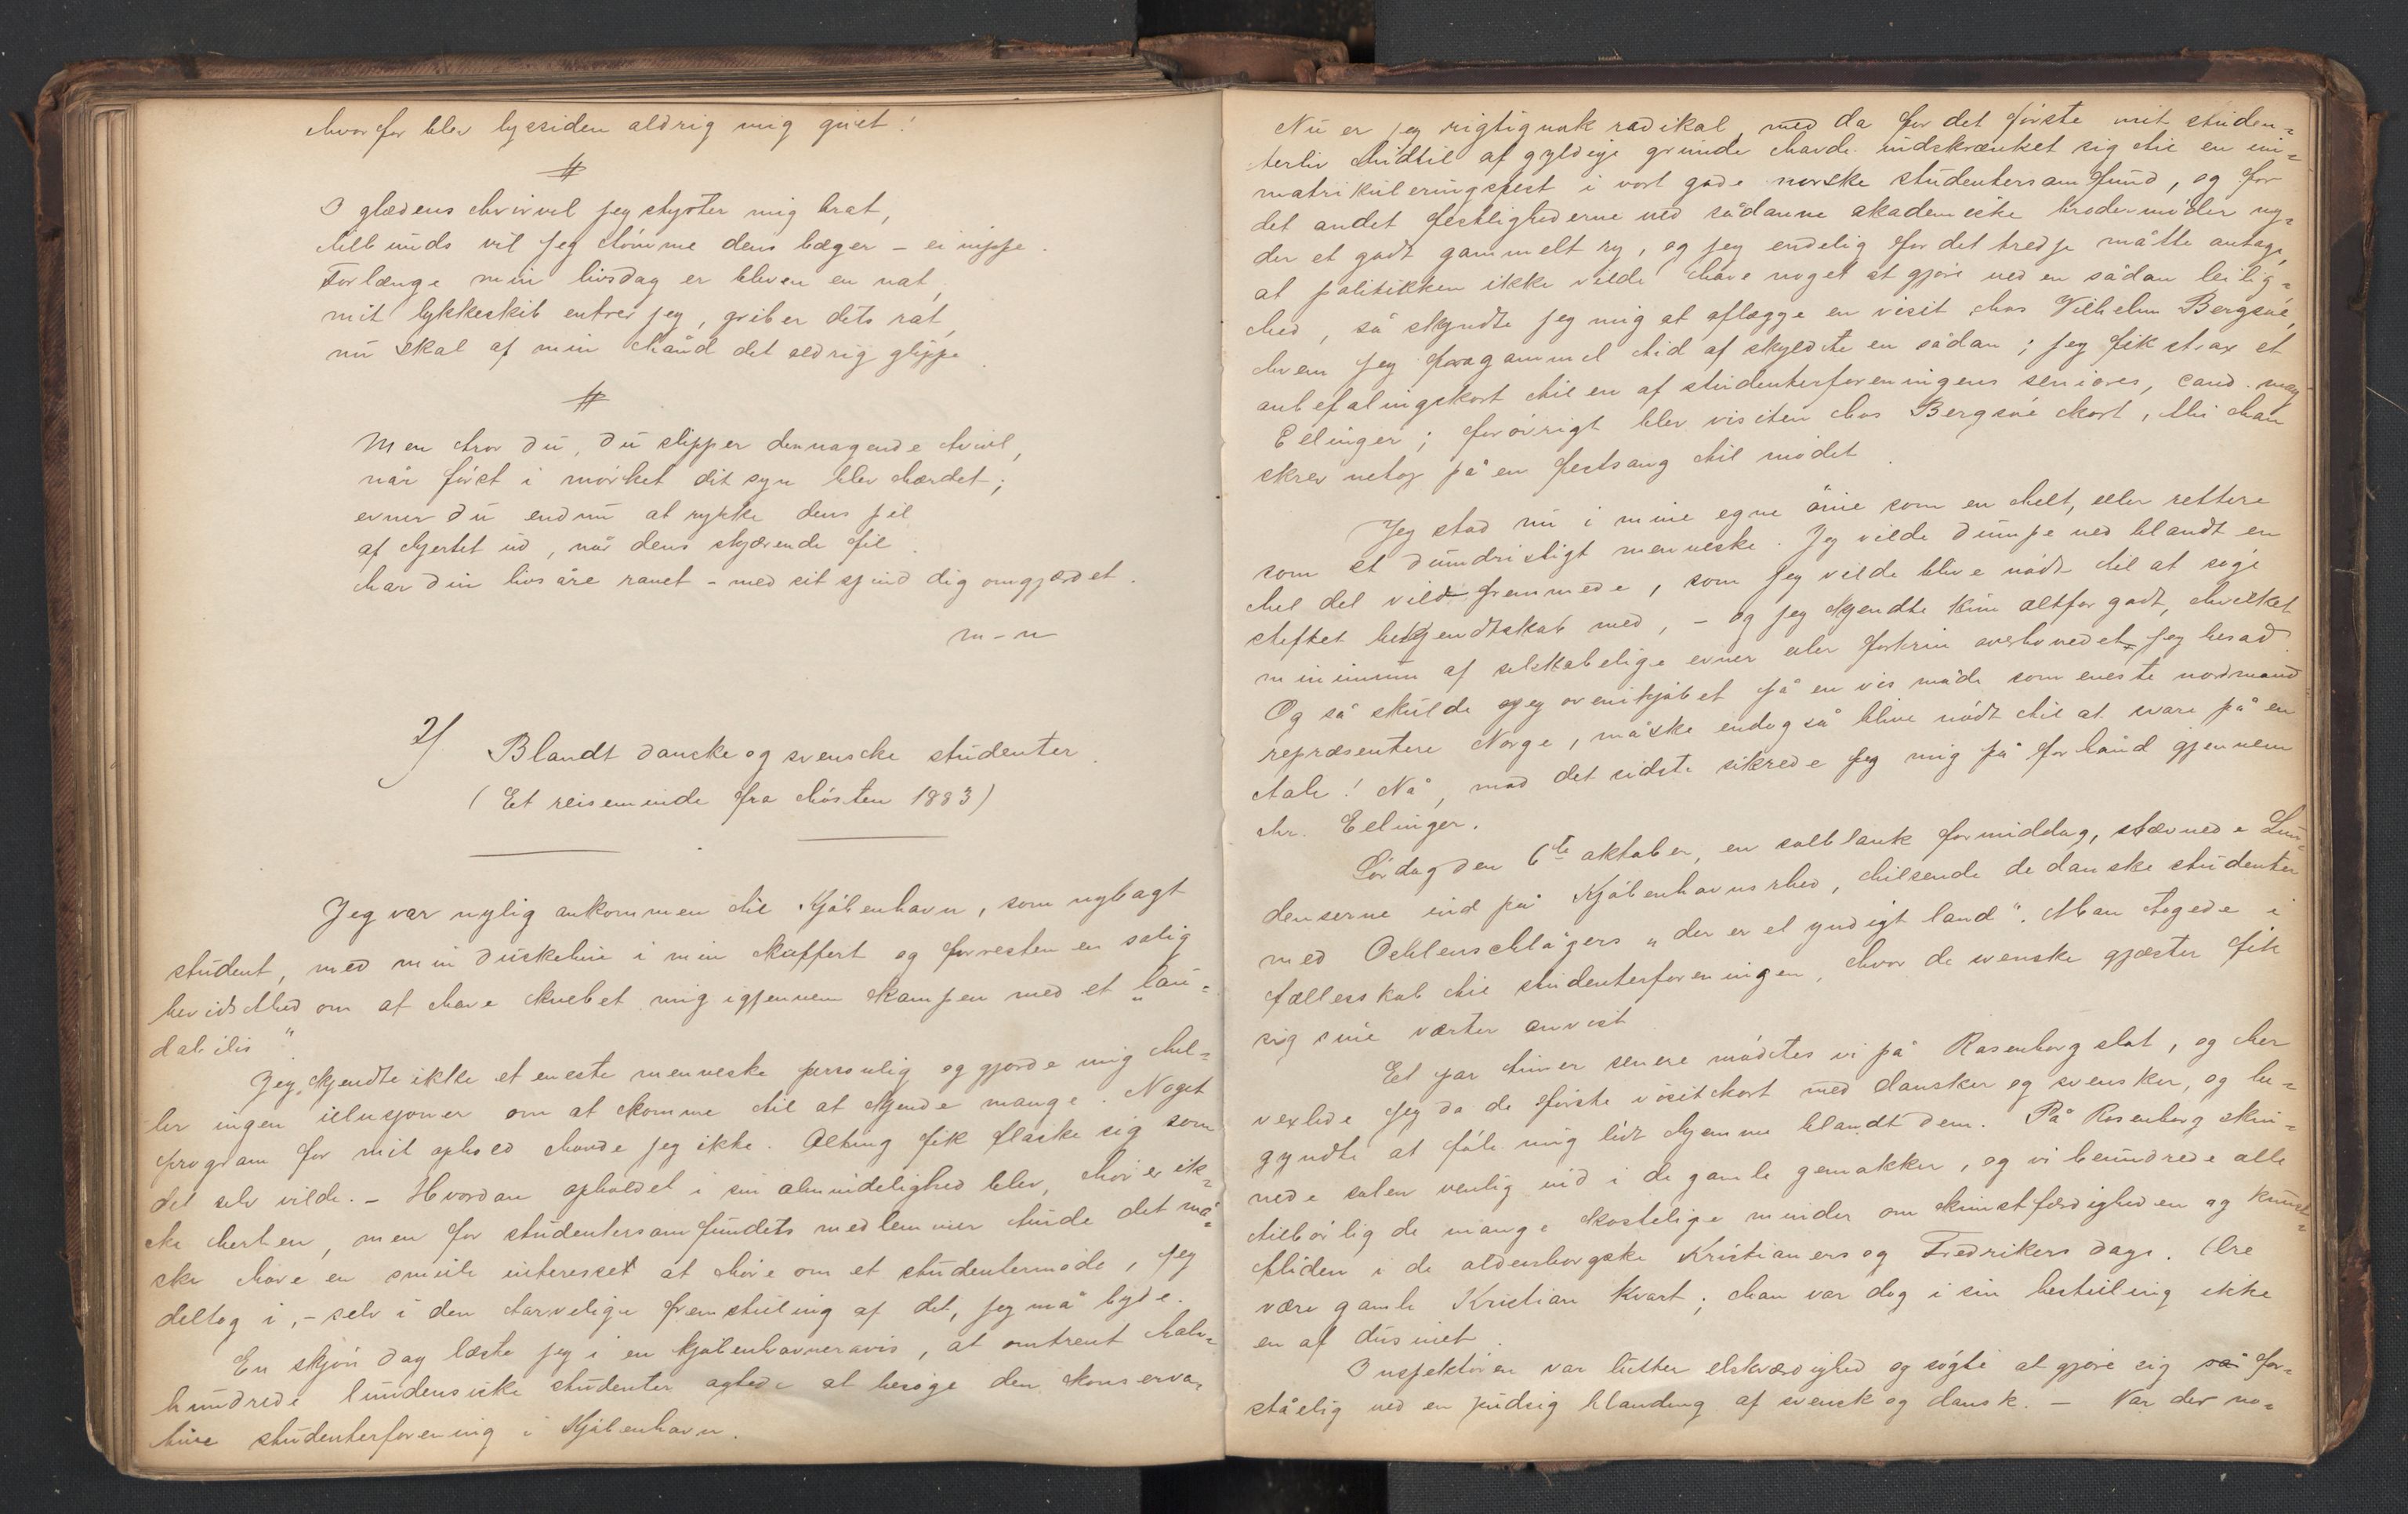 hvorfor blev lyssiden aldrig mig givet!
#
I glædens hvirvel jeg styrter mig brat,
tilbunds vil jeg tømme dens bæger – ei nippe.
Forlænge min livsdag er bleven en nat,
mit lykkeskib entrer jeg, griber dets rat,
nu skal af min hånd det aldrig glippe.
#
Men tror du, du slipper den nagende tvivl,
når først i mørket dit syn blev hærdet;
evner du endnu at rykke dens pil
af hjertet ud, når dens skjærende fil
har din livsåre ranet – med sit spind dig omgjærdet.
m–n
2/ Blandt danske og svenske studenter.
(Et reiseminde fra høsten 1883)
Jeg var nylig ankommen til Kjøbenhavn, som nybagt
student, med min duskehue i min kuffert og forresten en salig
bevidsthed om at have knebet mig igjennem kampen med et "lau=
dabilis".
Jeg kjendte ikke et eneste menneske personlig og gjorde mig hel=
ler ingen illusjoner om at komme til at kjende mange. Noget
program for mit ophold havde jeg ikke. Alting fik flaske sig som
det selv vilde. – Hvordan opholdet i sin almindelighed blev, hører ik=
ke herhen, men for studentersamfundets medlemmer turde det må=
ske have en smule interesse at høre om et studentermøde, jeg
deltog i, – selv i den tarvelige fremstilling af det, jeg må byde.
En skjøn dag læste jeg i en kjøbenhavneravis, at omtrent halv=
hundrede lundensiske studenter agtede at besøge den konserva=
tive studenterforening i Kjøbenhavn.
Nu er jeg rigtignok radikal, med da for det første mit studen=
terliv hidtil af gyldige grunde havde indskrænket sig til en im=
matrikuleringsfest i vort gode norske studentersamfund, og for
det andet festlighederne ved sådanne akademiske brodermøder ny=
der et godt gammelt ry, og jeg endelig for det tredje måtte antage,
at politikken ikke vilde have noget at gjøre ved en sådan leilig=
hed, så skyndte jeg mig at aflægge en visit hos Vilhelm Bergsøe,
hvem jeg fra gammel tid af skyldte en sådan; jeg fik strax et
anbefalingskort til en af studenterforeningens seniores, cand. mag
Ellinger; forøvrigt blev visiten hos Bergsøe kort, thi han
skrev netop på en festsang til mødet.
Jeg stod nu i mine egne øine som en helt, eller rettere
som et dumdristigt menneske. Jeg vilde dumpe ned blandt en
hel del vildfremmede, som jeg vilde blive nødt til at søge
stiftet bekjendtskab med, – og jeg kjendte kun altfor godt, hvilket
minimum af selskabelige evner eller fortrin overhovedet jeg besad.
Og så skulde jeg ovenikjøbet på en vis måde som eneste nordmand
repræsentere Norge, måske endogså blive nødt til at svare på en
tale! Nå, mod det sidste sikrede jeg mig på forhånd gjennem
hr. Ellinger.
Lørdag den 6te oktober, en solblank formiddag, stævnede Lun=
denserne ind på Kjøbenhavns rhed, hilsende de danske studenter
med Oehlenschlägers "der er et yndigt land". Man togede i
fællesskab til studenterforeningen, hvor de svenske gjæster fik
sig sine værter anvist.
Et par timer senere mødtes vi på Rosenborg slot, og her
vexlede jeg da de første visitkort med dansker og svensker, og be=
gyndte at føle mig lidt hjemme blandt dem. På Rosenborg skin=
nede solen venlig ind i de gamle gemakker, og vi beundrede alle
tilbørlig de mange kostelige minder om kunstfærdigheden og kunst=
fliden i de oldenborgske Kristianers og Fredrikers dage. Ære
være gamle Kristian Kvart; han var dog i sin bestilling ikke
en af dusinet.
Inspektøren var lutter elskværdighed og søgte at gjøre sig for=
ståelig ved en pudsig blanding af svensk og dansk. – Var der no=